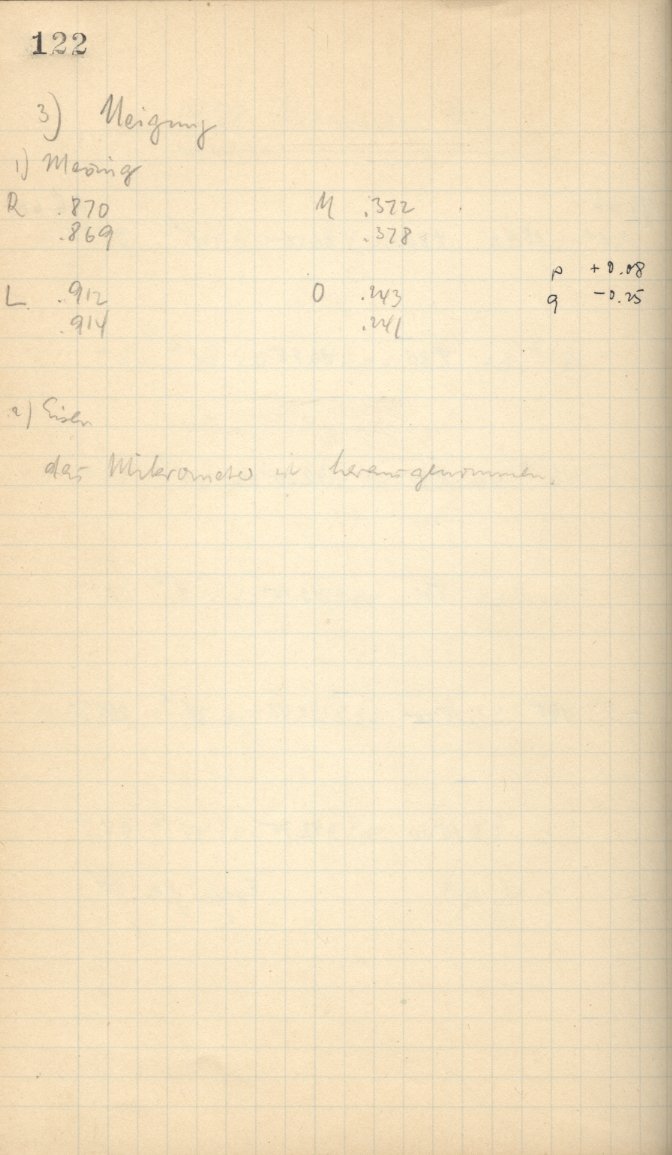 122
3) Neigung
1) Messing
R .870 M .372
.869 .378
p +0.08
L .912 O .243 q -0.25
.914 .241
2) Eisen
das Mikrometer ist herausgenommen.